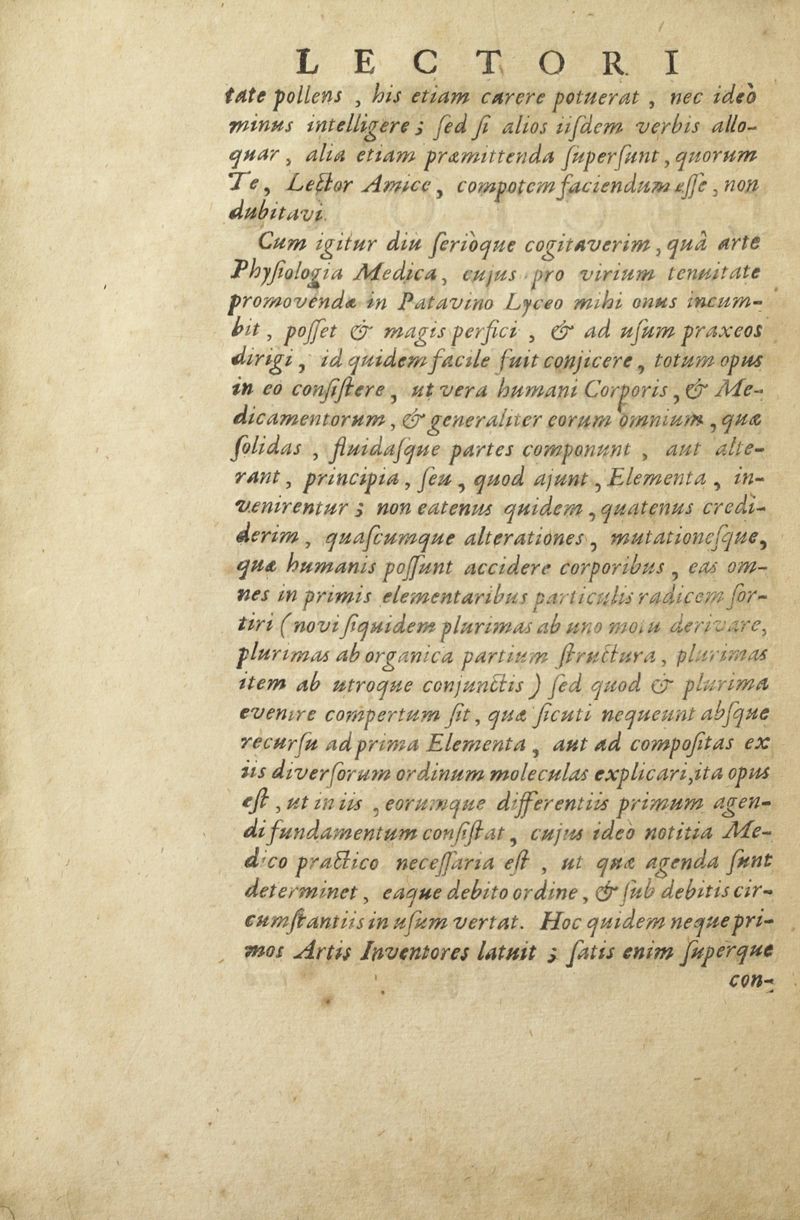 LECTORI
tate pollens , his etiam carere potuerat , nec ideò
minus intelligere ; ſed ſi alios iiſdem verbis allo-
quar , alia etiam præmittenda ſuperſunt , quorum
Te , Lector Amice , compotem faciendum eſſe , non
dubitavi.
Cum igitur diu ſerióque cogitaverim , quâ arte
Phyſiologia Medica , cujus pro virium tenuitate
promovendæ in Patavino Lyceo mihi onus incum-
bit , poſſet & magis perfici , & ad uſum praxeos
dirigi , id quidem facile fuit conjicere , totum opus
in eo conſiſtere , ut vera humani Corporis , & Me-
dicamentorum , & generaliter eorum omnium , quæ
ſolidas , fluidaſque partes componunt , aut alte-
rant , principia , ſeu , quod ajunt , Elementa , in-
venirentur ; non eatenus quidem , quatenus credi-
derim , quaſcumque alterationes , mutationeſque,
quæ humanis poſſunt accidere corporibus , eas om-
nes in primis elementaribus particulis radicem ſor-
tiri ( novi ſiquidem plurimas ab uno motu derivare,
plurimas ab organica partium ſtructura , plurimas
item ab utroque conjunctis ) ſed quod & plurima
evenire compertum ſit , quæ ſicuti nequeunt abſque
recurſu ad prima Elementa , aut ad compoſitas ex
iis diverſorum ordinum moleculas explicari,ita opus
eſt , ut in iis , eorumque differentiis primum agen-
di fundamentum conſiſtat , cujus ideò notitia Me-
dico practico neceſſaria eſt , ut quæ agenda ſunt
determinet , eaque debito ordine , & ſub debitis cir-
cumſtantiis in uſum vertat. Hoc quidem neque pri-
mos Artis Inventores latuit ; ſatis enim ſuperque
con-